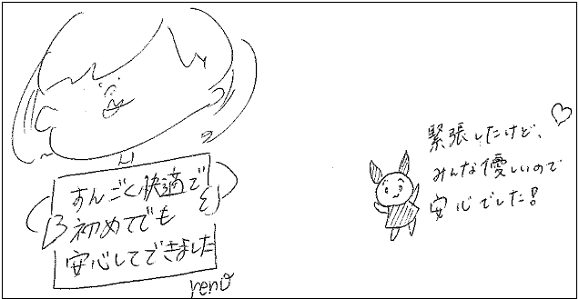 すんごく快適で
初めてでも
安心してできました
reno
緊張したけど、
みんな優しいので
安心でした!